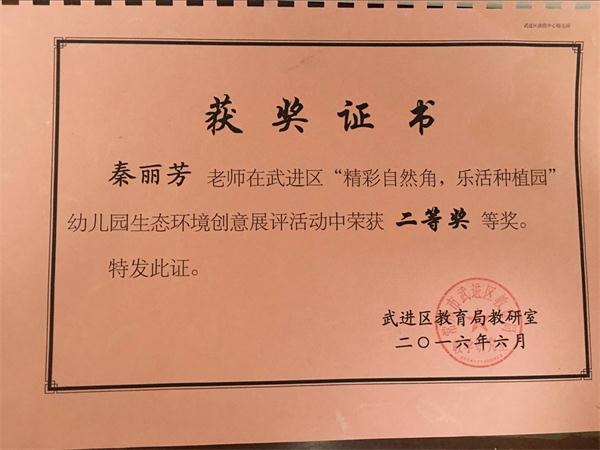 获奖证书
秦丽芳 老师在武进区“精彩自然角，乐活种植园”
幼儿园生态环境创意展评活动中荣获 二等奖 等奖。
特发此证。
武进区教育局教研室
二〇一六年六月